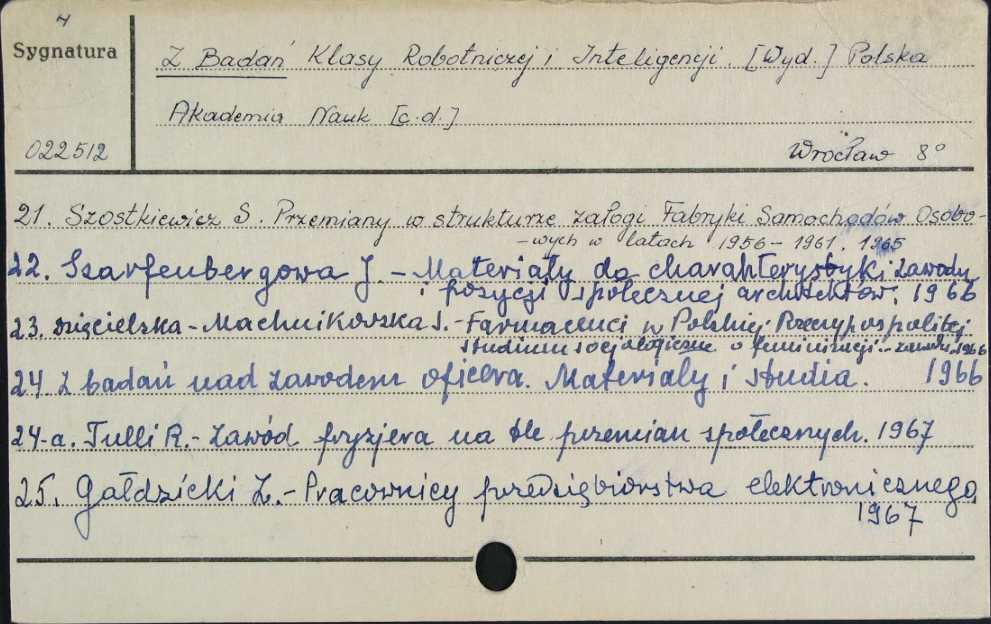 4
Sygnatura
Z Badań Klasy Robotniczej i Inteligencji. [Wyd.] Polska
Akademia Nauk [c.d.]
022512
Wrocław 8°
21. Szostkiewicz S. Przemiany w strukturze załogi Fabryki Samochodów Osobo-
-wych w latach 1956-1961. 1965
22. Szarfenbergowa J. - Materiały do charakterystyki zawodu
i pozycji społecznej architektów. 1966
23. Dzięcielska-Machnikowska S. - Farmaceuci w Polskiej Rzeczypospolitej
studium socjologiczne o feminizacji zawodu. 1966
24. Z badań nad zawodem oficera. Materiały i studia. 1966
24-a. Tulli R. - Zawód fryzjera na tle przemian społecznych. 1967
25. Gałdzicki Z. - Pracownicy przedsiębiorstwa elektronicznego,
1967